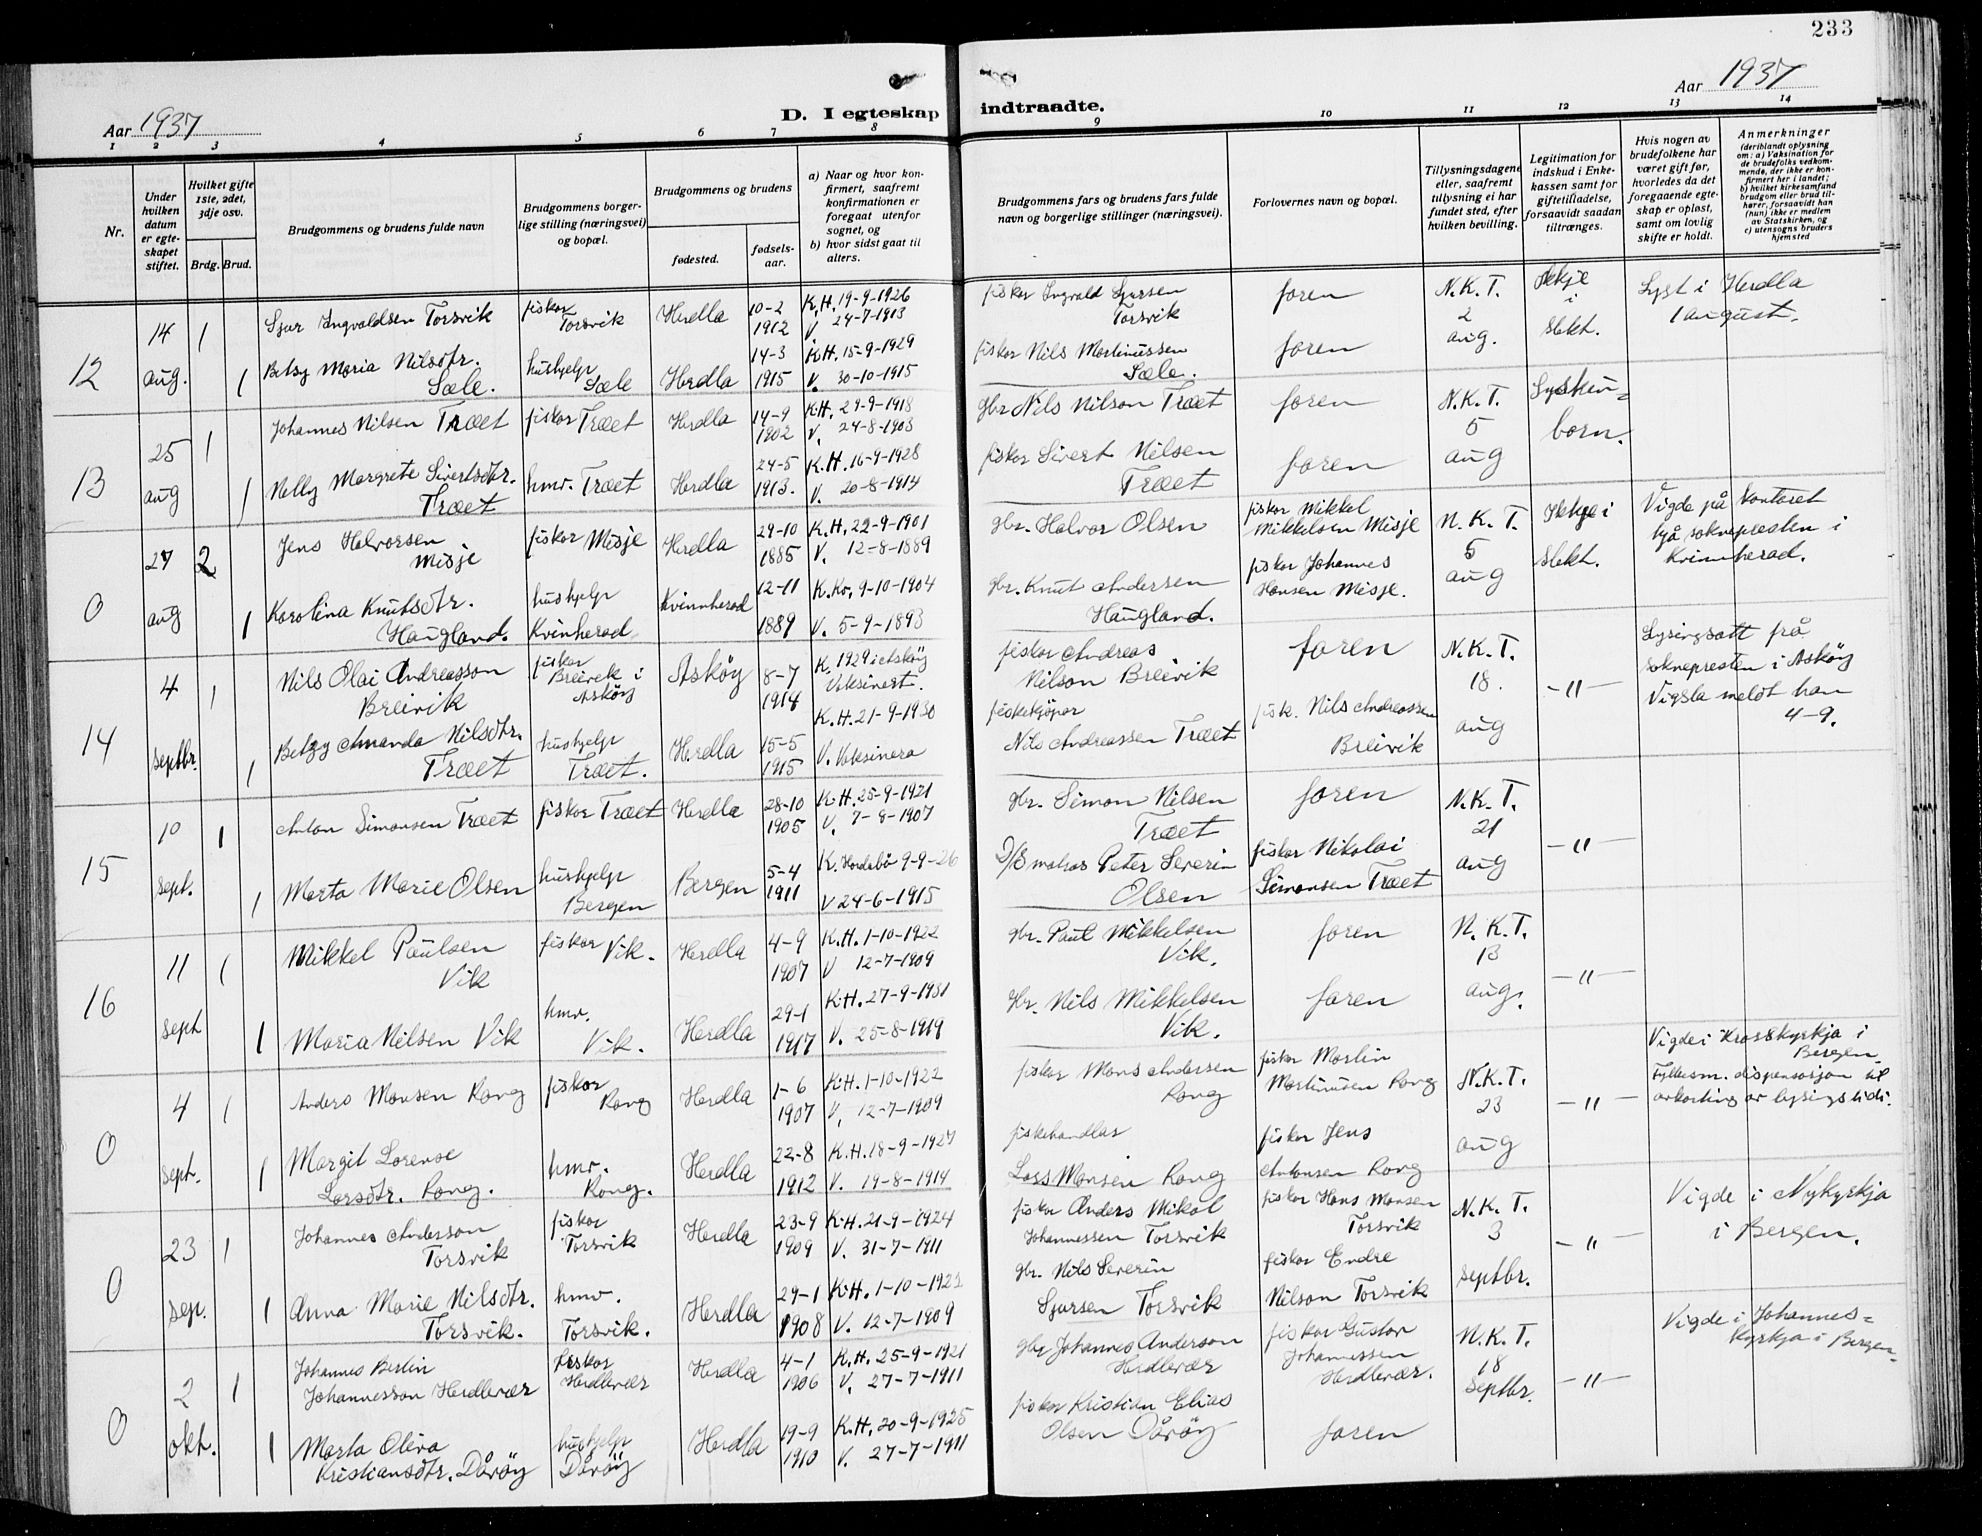 233
Aar 1937
D. I egteskap indtraadte.
Aar 1937
1 2 3 4 5 6 7 8 9 10 11 12 13 14
Nr.
Under hvilken datum er egteskapet stiftet.
Hvilket gifte 1ste, 2det, 3dje osv.
Brdg. Brud.
Brudgommens og brudens fulde navn
Brudgommens borgerlige stilling (næringsvei) og bopæl.
Brudgommens og brudens
fødested.
fødselsaar.
a) Naar og hvor konfirmert, saafremt konfirmationen er foregaat utenfor sognet, og
b) hvor sidst gaat til alters.
Brudgommens fars og brudens fars fulde navn og borgerlige stillinger (næringsvei).
Forlovernes navn og bopæl.
Tillysningsdagene eller, saafremt tillysning ei har fundet sted, efter hvilken bevilling.
Legitimation for indskud i Enkekassen samt for giftetilladelse, forsaavidt saadan tiltrænges.
Hvis nogen av brudefolkene har været gift før, hvorledes da det foregaaende egteskap er opløst, samt om lovlig skifte er holdt.
Anmerkninger
(deriblandt oplysning om: a) Vaksination for de brudefolks vedkommende, der ikke er konfirmert her i landet; b) hvilket kirkesamfund brudgom eller brud tilhører, forsaavidt han (hun) ikke er medlem av Statskirken, og c) utensogns bruders hjemsted
12
14 aug.
1
Sjur Ingvaldsen Torsvik
fiskar Torsvik
Herdla
10-2 1912
K.H. 19-9-1926
V. 24-7-1913
fiskar Ingvald Sjursen Torsvik
faren
N.K.T. 2 aug.
Ikkje i slekt.
Lyst i Herdla 1 august.
1
Betsy Maria Nilsdtr. Sæle.
hushjelp Sæle
Herdla
14-3 1915
K.H. 15-9-1929
V. 30-10-1915
fiskar Nils Martinussen Sæle.
faren
13
25 aug
1
Johannes Nilsen Træet
fiskar Træet
Herdla
14-9 1902
K.H. 29-9-1918
V. 24-8-1903
gbr Nils Nilson Træet
faren
N.K.T. 5 aug
Syskenborn.
1
Nelly Margrete Sivertsdtr. Træet
hmv. Træet
Herdla
24-5 1913.
K.H. 16-9-1928
V. 20-8-1914
fiskar Sivert Nilsen Træet
faren
0
27 aug
2
Jens Halvorsen Misje
fiskar Misje
Herdla
29-10 1885
K.H. 22-9-1901
V. 12-8-1889
gbr. Halvor Olsen
fiskar Mikkel Mikkelsen Misje
N.K.T. 5 aug
Ikkje i slekt.
Vigde på kontoret hjå soknepresten i Kvinnherad.
1
Karolina Knutsdtr. Haugland.
hushjelp Kvinherad
Kvinnherad
12-11 1889
K.Kv. 9-10-1904
V. 5-9-1893
gbr. Knut Andersen Haugland.
fiskar Johannes Hansen Misje.
14
4 septbr.
1
Nils Olai Andreasson Breivik
fiskar Breivik i Asköy
Asköy
8-7 1914
K. 1929 i Asköy
Vaksinert.
fiskar Andreas Nilson Breivik
faren
N.K.T. 18. aug
-"-
Lysingsatt frå soknepresten i Asköy
Vigsla meldt han 4-9.
1
Betzy Amanda Nilsdtr. Træet
hushjelp Træet.
Herdla
15-5 1915
K.H. 21-9-1930
V. Vaksinera
fiskekjöpar Nils Andreassen Træet
fisk. Nils Andreassen Breivik
15
10 sept.
1
Anton Simonsen Træet
fiskar Træet
Herdla
28-10 1905
K.H. 25-9-1921
V. 7-8-1907
gbr. Simon Nilsen Træet
faren
N.K.T. 21 aug
-"-
1
Marta Marie Olsen
hushjelp Bergen
Bergen
5-4 1911
K. Hordabö 9-9-26
V 24-6-1915
D/S matros Peter Severin Olsen
fiskar Nikolai Simonsen Træet
16
11 sept
1
Mikkel Paulsen Vik
fiskar Vik.
Herdla
4-9 1907
K.H. 1-10-1922
V 12-7-1909
gbr. Paul Mikkelsen Vik.
faren
N.K.T. 13 aug.
-"-
1
Maria Nilsen Vik
hmv. Vik.
Herdla
29-1 1917
K.H. 27-9-1931
V. 25-8-1919
gbr. Nils Mikkelsen Vik.
faren
0
4 sept.
1
Anders Monsen Rong
fiskar Rong
Herdla
1-6 1907
K.H. 1-10-1922
V. 12-7-1909
fiskar Mons Andersen Rong
fiskar Martin Martinusen Rong
N.K.T. 23 aug
-"-
Vigde i Krosskyrkja i Bergen.
Fylkesm. dispensasjon til avkorting av lysingstidi.
1
Margit Lorense Larsdtr. Rong.
hmv. Rong.
Herdla
22-8 1912
K.H. 18-9-1927
V. 19-8-1914
fiskehandlar Lars Monsen Rong
fiskar Jens Antonsen Rong
0
23 sep.
1
Johannes Anderson Torsvik
fiskar Torsvik
Herdla
23-9 1909
K.H. 21-9-1924
V. 31-7-1911
fiskar Anders Mikal Johannessen Torsvik
fiskar Hans Monsen Torsvik
N.K.T. 3 septbr.
-"-
Vigde i Nykyrkja i Bergen.
1
Anna Marie Nilsdtr. Torsvik.
hmv. Torsvik.
Herdla
29-1 1908
K.H. 1-10-1922
V. 12-7-1909
gbr. Nils Severin Sjursen Torsvik
fiskar Endre Nilson Torsvik
0
2 okt.
1
Johannes Berlin Johannesson Herdlevær
fiskar Herdlevær
Herdla
4-1 1906
K.H. 25-9-1921
V. 27-7-1911
gbr Johannes Anderson Herdlevær
fiskar Gustav Johannessen Herdlevær.
N.K.T. 18 septbr.
-"-
Vigde i Johanneskyrkja i Bergen.
1
Marta Oliva Kristiansdtr. Dåröy
hushjelp Dåröy
Herdla
19-9 1910
K.H. 20-9-1925
V. 27-7-1911
fiskar Kristian Elias Olsen Dåröy
faren